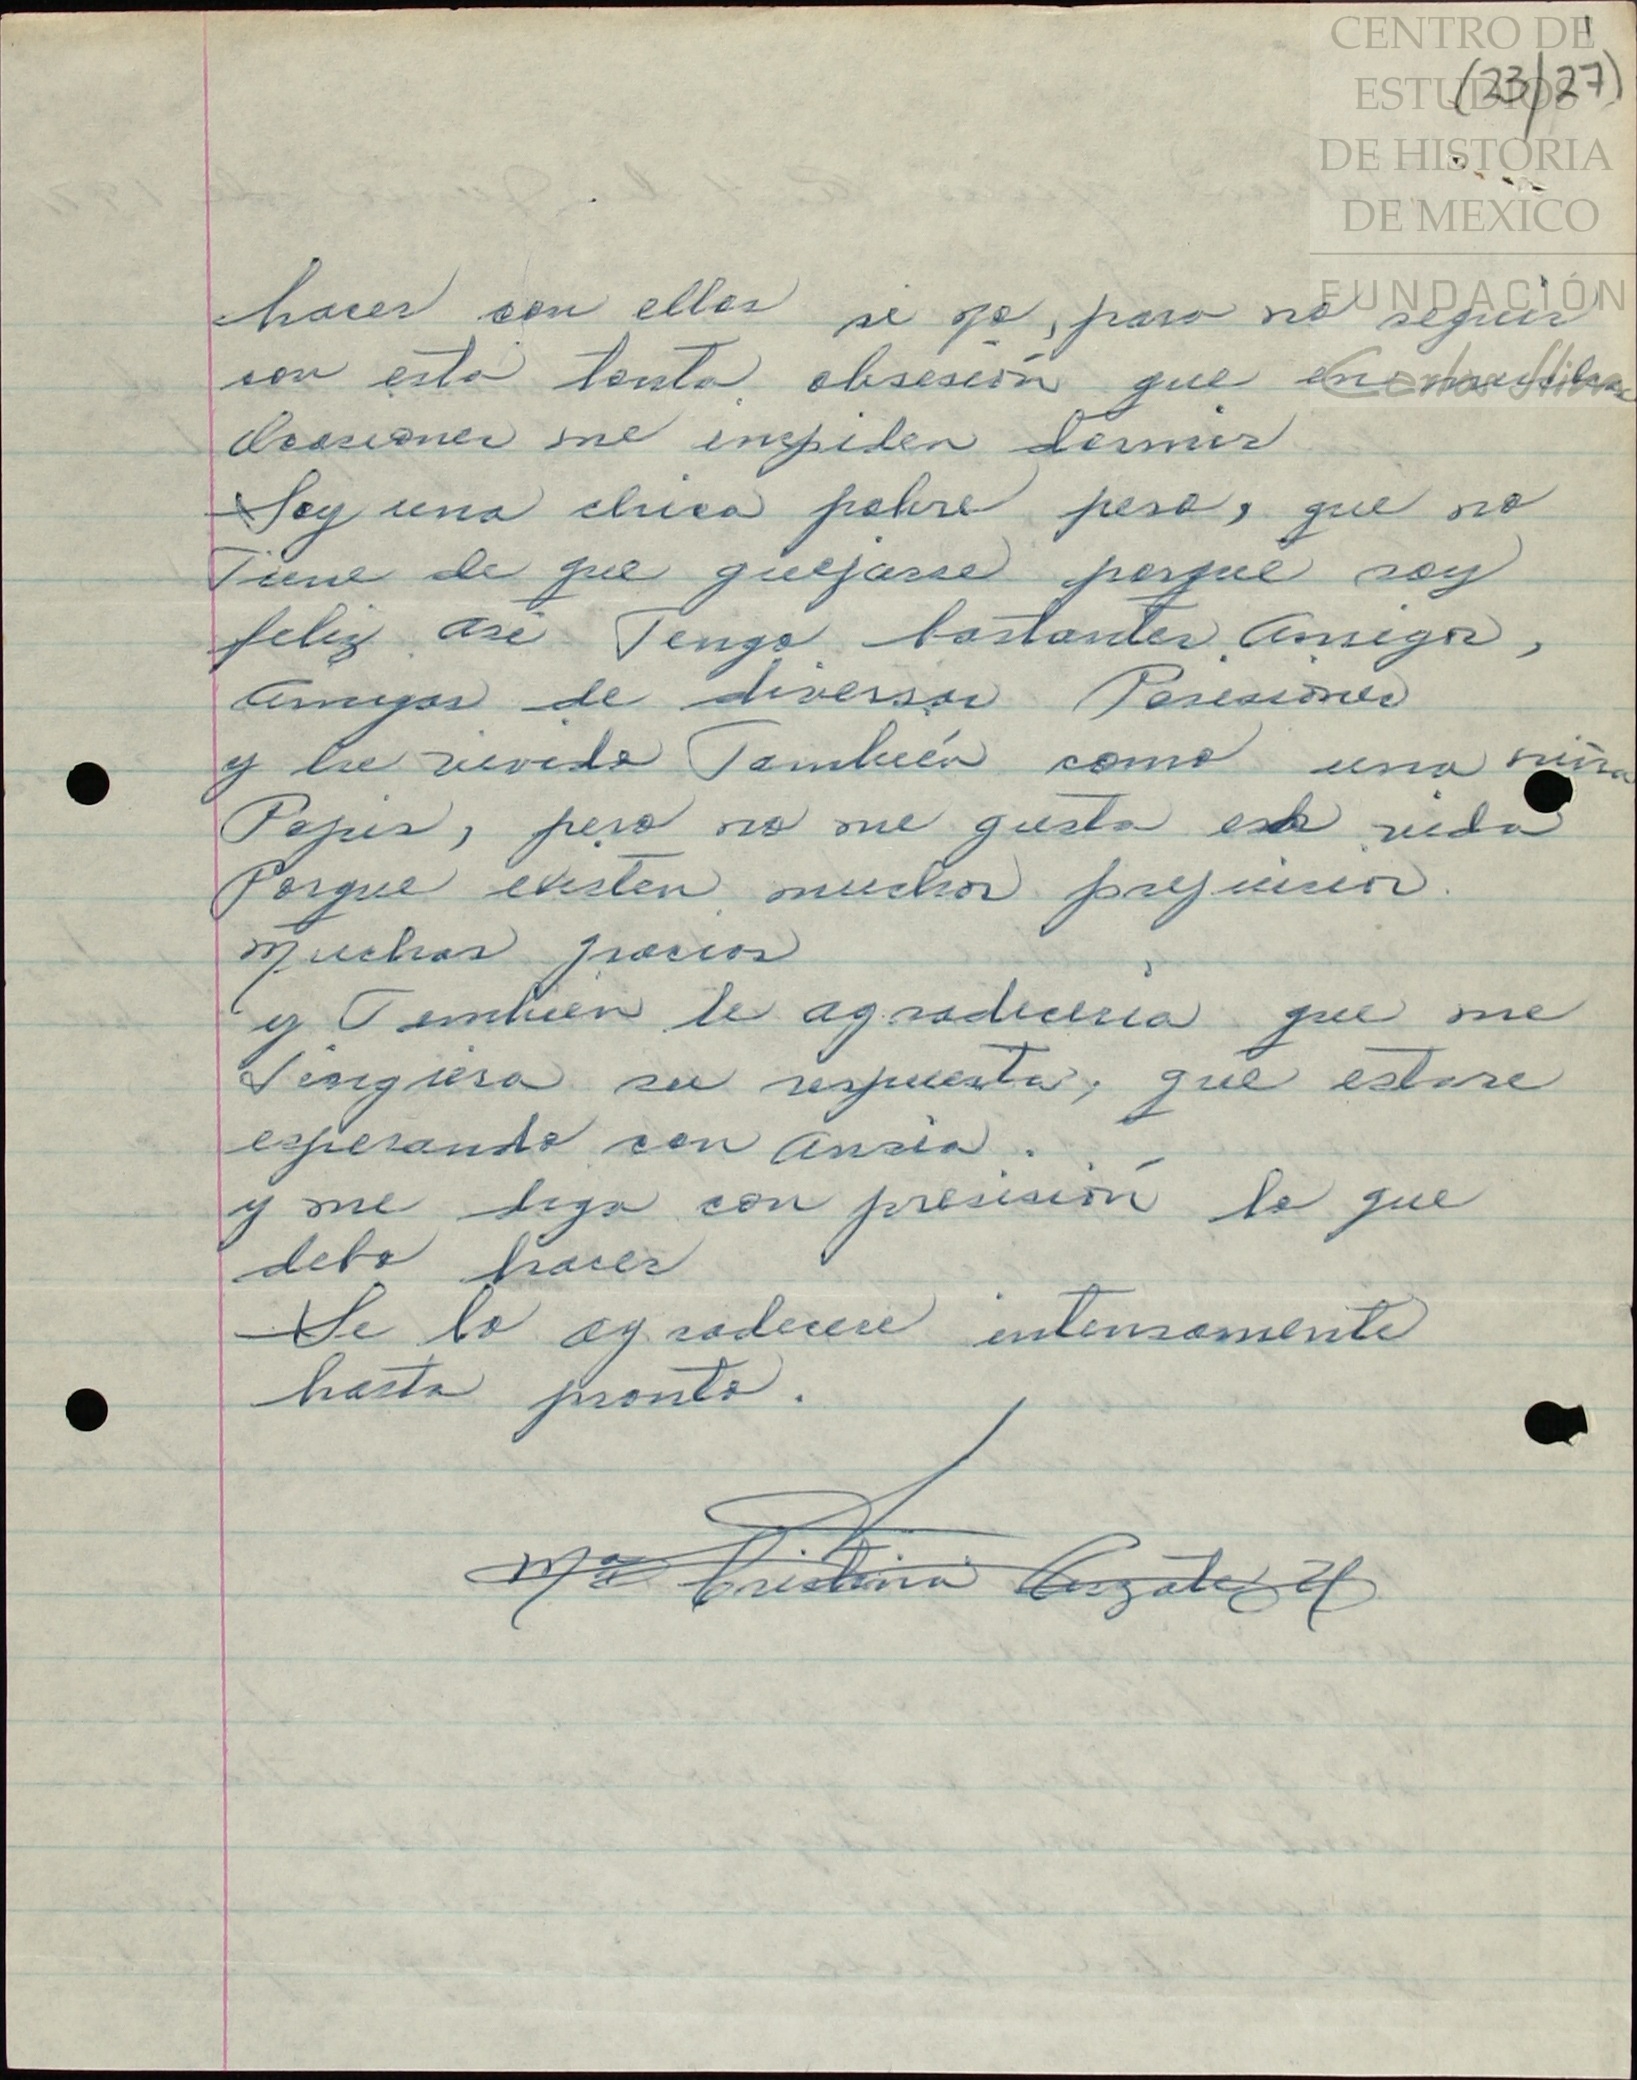 CENTRO DE
ESTUDIOS
DE HISTORIA
DE MEXICO
FUNDACIÓN
Carlos Slim
(23/27)
hacer con ellos si yo, para no seguir
con esta tonta obsesión que en muchas
Ocasiones me inspiden dormir
Soy una chica pobre pero, que no
Tiene de que quejarse porque soy
feliz asi Tengo bastantes Amigos,
Amigas de diversas Posesiones
y he vivido También como una niña
Popis, pero no me gusta esa vida
Porque existen muchos prejuicios.
Muchas gracias
y Tambien le agradeceria que me
diregiera su respuesta, que estare
esperando con Ansia.
y me diga con presisión lo que
debo hacer
Se lo agradecere intensamente
hasta pronto.
Ma Cristina